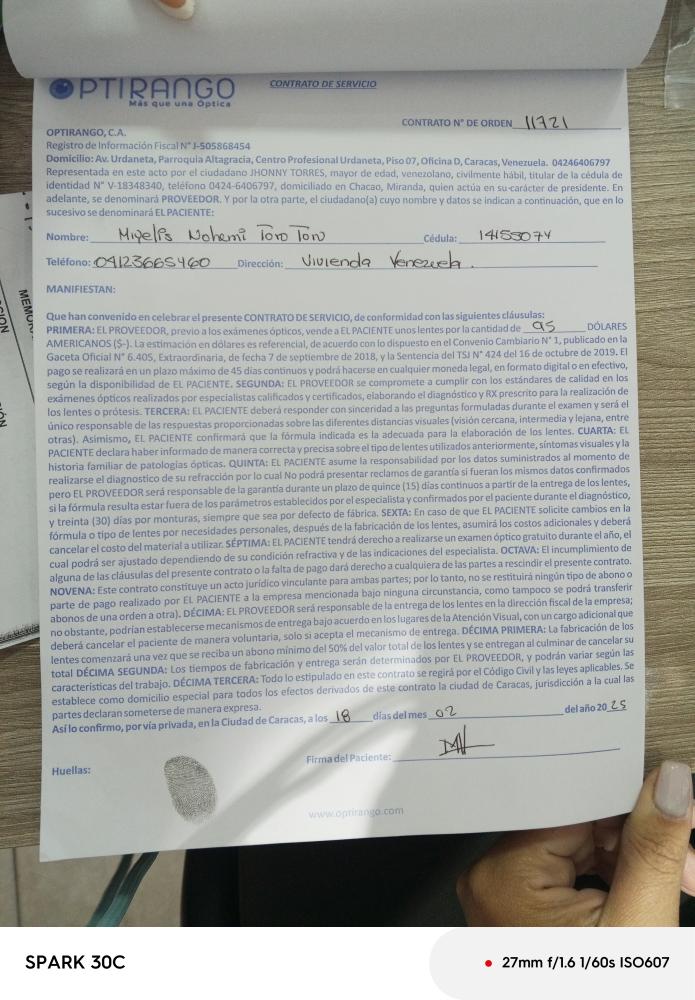 OPTIRANGO
Más que una Óptica
CONTRATO DE SERVICIO
CONTRATO N° DE ORDEN 11721
OPTIRANGO, C.A.
Registro de Información Fiscal N° J-505868454
Domicilio: Av. Urdaneta, Parroquia Altagracia, Centro Profesional Urdaneta, Piso 07, Oficina D, Caracas, Venezuela. 04246406797
Representada en este acto por el ciudadano JHONNY TORRES, mayor de edad, venezolano, civilmente hábil, titular de la cédula de
identidad N° V-18348340, teléfono 0424-6406797, domiciliado en Chacao, Miranda, quien actúa en su carácter de presidente. En
adelante, se denominará PROVEEDOR. Y por la otra parte, el ciudadano(a) cuyo nombre y datos se indican a continuación, que en lo
sucesivo se denominará EL PACIENTE:
Nombre: Nohemi Toro Toro Cédula: 14155074
Teléfono: 04123665460 Dirección: Vivienda Venezuela.
MANIFIESTAN:
Que han convenido en celebrar el presente CONTRATO DE SERVICIO, de conformidad con las siguientes cláusulas:
PRIMERA: EL PROVEEDOR, previo a los exámenes ópticos, vende a EL PACIENTE unos lentes por la cantidad de 95 DÓLARES
AMERICANOS ($-). La estimación en dólares es referencial, de acuerdo con lo dispuesto en el Convenio Cambiario N° 1, publicado en la
Gaceta Oficial N° 6.405, Extraordinaria, de fecha 7 de septiembre de 2018, y la Sentencia del TSJ N° 424 del 16 de octubre de 2019. El
pago se realizará en un plazo máximo de 45 días continuos y podrá hacerse en cualquier moneda legal, en formato digital o en efectivo,
según la disponibilidad de EL PACIENTE. SEGUNDA: EL PROVEEDOR se compromete a cumplir con los estándares de calidad en los
exámenes ópticos realizados por especialistas calificados y certificados, elaborando el diagnóstico y RX prescrito para la realización de
los lentes o prótesis. TERCERA: EL PACIENTE deberá responder con sinceridad a las preguntas formuladas durante el examen y será el
único responsable de las respuestas proporcionadas sobre las diferentes distancias visuales (visión cercana, intermedia y lejana, entre
otras). Asimismo, EL PACIENTE confirmará que la fórmula indicada es la adecuada para la elaboración de los lentes. CUARTA: EL
PACIENTE declara haber informado de manera correcta y precisa sobre el tipo de lentes utilizados anteriormente, síntomas visuales y la
historia familiar de patologías ópticas. QUINTA: EL PACIENTE asume la responsabilidad por los datos suministrados al momento de
realizarse el diagnostico de su refracción por lo cual No podrá presentar reclamos de garantía si fueran los mismos datos confirmados
pero EL PROVEEDOR será responsable de la garantía durante un plazo de quince (15) días continuos a partir de la entrega de los lentes,
si la fórmula resulta estar fuera de los parámetros establecidos por el especialista y confirmados por el paciente durante el diagnóstico,
y treinta (30) días por monturas, siempre que sea por defecto de fábrica. SEXTA: En caso de que EL PACIENTE solicite cambios en la
fórmula o tipo de lentes por necesidades personales, después de la fabricación de los lentes, asumirá los costos adicionales y deberá
cancelar el costo del material a utilizar. SÉPTIMA: EL PACIENTE tendrá derecho a realizarse un examen óptico gratuito durante el año, el
cual podrá ser ajustado dependiendo de su condición refractiva y de las indicaciones del especialista. OCTAVA: El incumplimiento de
alguna de las cláusulas del presente contrato o la falta de pago dará derecho a cualquiera de las partes a rescindir el presente contrato.
NOVENA: Este contrato constituye un acto jurídico vinculante para ambas partes; por lo tanto, no se restituirá ningún tipo de abono o
parte de pago realizado por EL PACIENTE a la empresa mencionada bajo ninguna circunstancia, como tampoco se podrá transferir
abonos de una orden a otra). DÉCIMA: EL PROVEEDOR será responsable de la entrega de los lentes en la dirección fiscal de la empresa;
no obstante, podrían establecerse mecanismos de entrega bajo acuerdo en los lugares de la Atención Visual, con un cargo adicional que
deberá cancelar el paciente de manera voluntaria, solo si acepta el mecanismo de entrega. DÉCIMA PRIMERA: La fabricación de los
lentes comenzará una vez que se reciba un abono mínimo del 50% del valor total de los lentes y se entregan al culminar de cancelar su
total DÉCIMA SEGUNDA: Los tiempos de fabricación y entrega serán determinados por EL PROVEEDOR, y podrán variar según las
características del trabajo. DÉCIMA TERCERA: Todo lo estipulado en este contrato se regirá por el Código Civil y las leyes aplicables. Se
establece como domicilio especial para todos los efectos derivados de este contrato la ciudad de Caracas, jurisdicción a la cual las
partes declaran someterse de manera expresa.
Así lo confirmo, por vía privada, en la Ciudad de Caracas, a los 18 días del mes 02 del año 2025
Firma del Paciente:
Huellas:
www.optirango.com
SPARK 30C
27mm f/1.6 1/60s ISO607